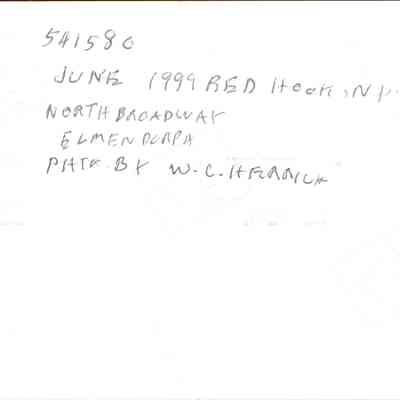 541580
JUNE 1999 RED HOOK, N.Y.
NORTH BROADWAY
ELMENDORPH
PHTO BY W.C. HERRICK